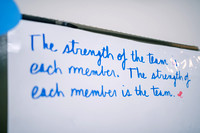 The strength of the team
each member. The strength of
each member is the team.